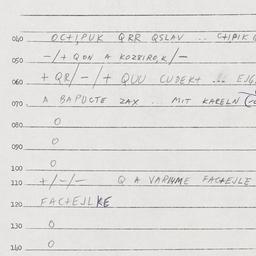 040 OCTIPUK QRR QSLAV .. CTIPIK
050 -/+ QON A KOZBIROK /-
060 + QR/-/+ QUU CUDEKT ... EJG
070 A BAPUCTE ZAX .. MIT KARELN
080 0
090 0
100 0
110 +/-/- Q A VARIUME FACTEJLE
120 FACTEJLKE
130 0
140 0